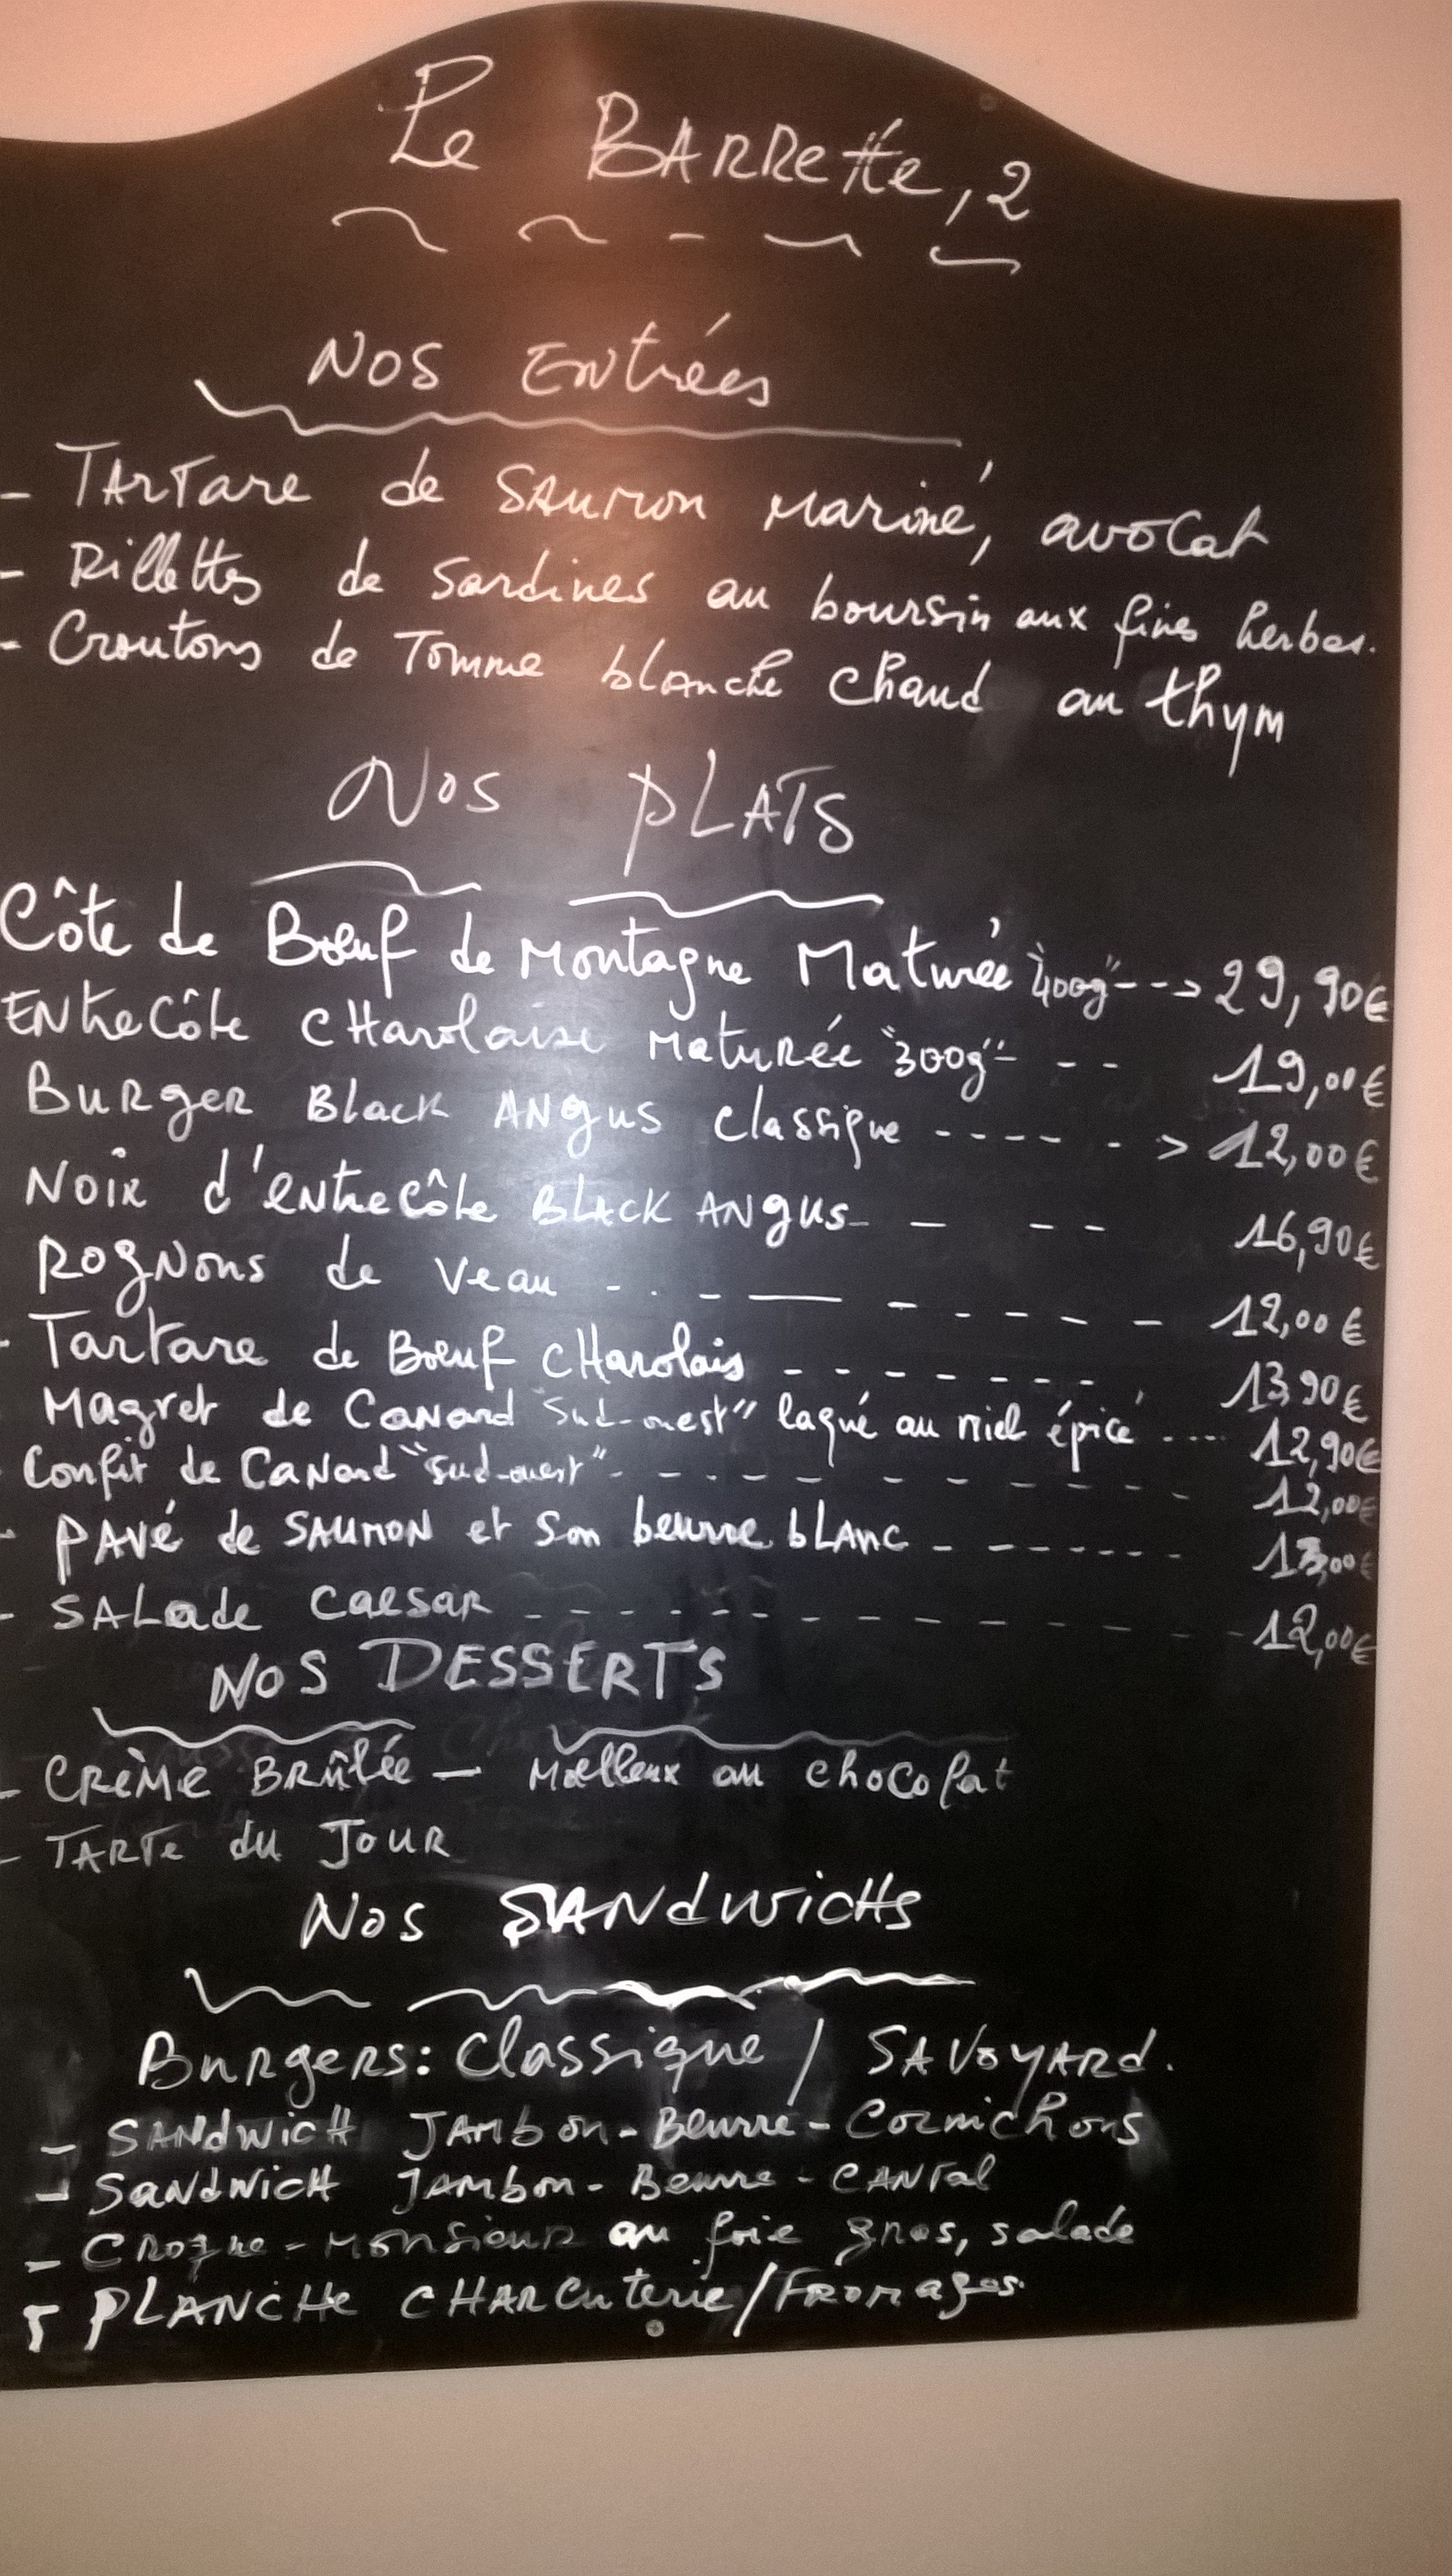 Le BARRette, 2
NOS Entrées
- TArTare de SAUMON Mariné, avocat
- Rillettes de Sardines au boursin aux fines herbes.
- Croutons de Tomme blanche chaud au thym
Nos PLATS
Côte de Bœuf de Montagne Maturée "400g" --> 29,90€
ENtrecôte CHarolaise Maturée "300g" - - - 19,00€
Burger Black ANgus classique ---- - > 12,00€
NOix d'entrecôte BLACK ANgus - - - - 16,90€
ROgNons de veau - . - — - - - - - 12,00€
- Tartare de Bœuf CHarolais - - - - - - - 13,90€
Magret de CaNard "Sud-ouest" laqué au miel épicé .... 12,90€
- Confit de CaNard "Sud-ouest" - - - - - - - - - 12,00€
- PAVé de SAUMON et Son beurre bLANC - ------ 13,00€
- SALade Caesar - - - - - - - - - - - - - 12,00€
NOS DESSERTS
- CRèMe BRûlée - Moelleux au chocolat
- TARTe du JOUR
Nos SANdwicHs
BuRgeRs: Classique / SAVOYARd.
- SANdwicH JAMbon-Beurre-Cornichons
- SaNdwicH JAMbon-Beurre-CANTal
- CRoque-Monsieur au foie gras, salade
- PLANCHe CHARcuterie/FROmages.